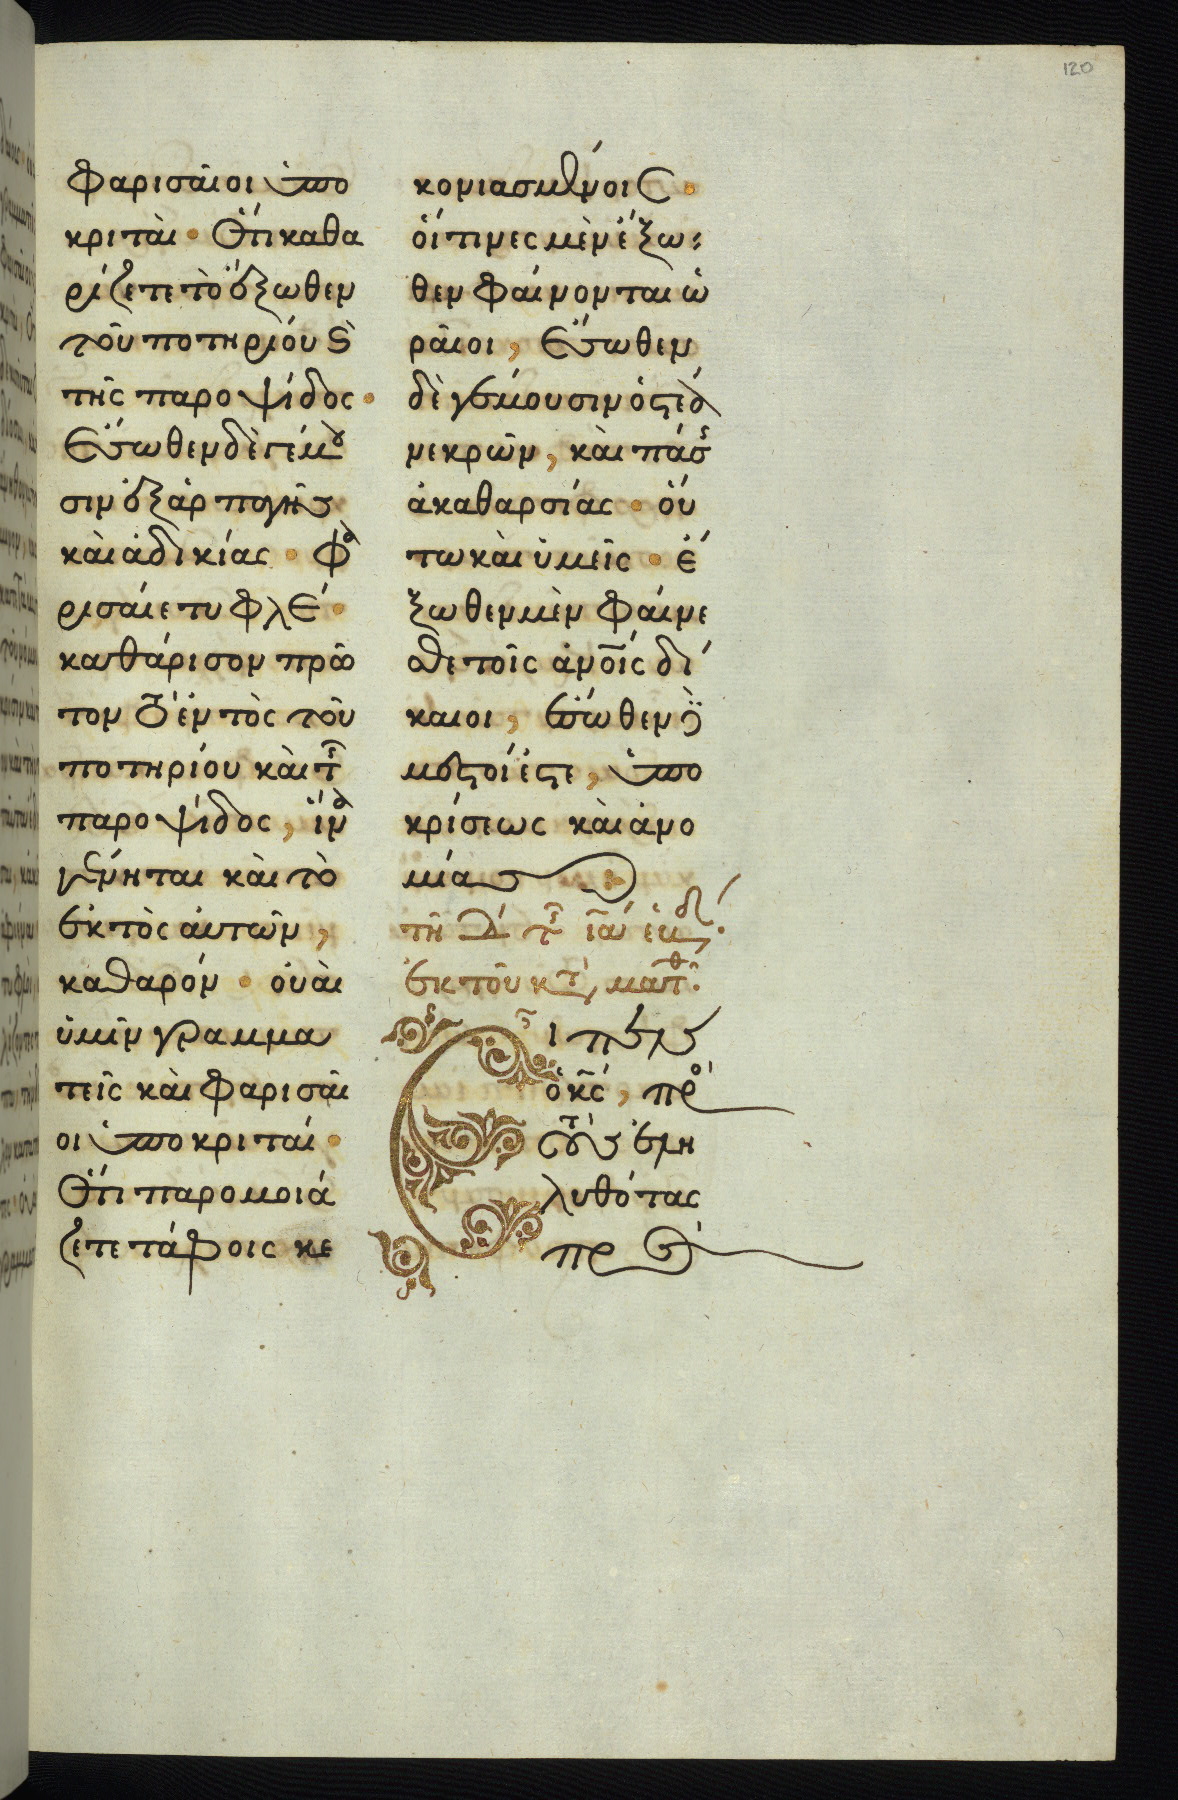 120
φαρισαῖοι ὑπο
κριταὶ · Ὅτι καθα
ρίζετε τὸ ἔξωθεν
τοῦ ποτηρίου ϗ
τῆς παροψίδος ·
ἔσωθεν δὲ γέμου
σιν ἐξ ἁρπαγῆς
καὶ ἀδικίας · Φα
ρισαῖε τυφλέ ·
καθάρισον πρῶ
τον τὸ ἐντὸς τοῦ
ποτηρίου καὶ τῆς
παροψίδος, ἵνα
γένηται καὶ τὸ
ἐκτὸς αὐτῶν,
καθαρόν · οὐαὶ
ὑμῖν γραμμα
τεῖς καὶ φαρισαῖ
οι ὑποκριταί ·
Ὅτι παρομοιά
ζετε τάφοις κε
κονιασμένοις ·
οἵτινες μὲν ἔξω
θεν φαίνονται ὡ
ραῖοι, ἔσωθεν
δὲ γέμουσιν ὀστέων
νεκρῶν, καὶ πάσης
ἀκαθαρσίας · οὕ
τω καὶ ὑμεῖς · ἔ
ξωθεν μὲν φαίνε
σθε τοῖς ἀνοῖς δί
καιοι, ἔσωθεν δὲ
μεστοί ἐστε, ὑπο
κρίσεως καὶ ἀνο
μίας
ἐκ τοῦ κτ ματθ
Εἶπεν
ὁ κς, πρὸ
τοὺς ἐλη
λυθότας
πρ